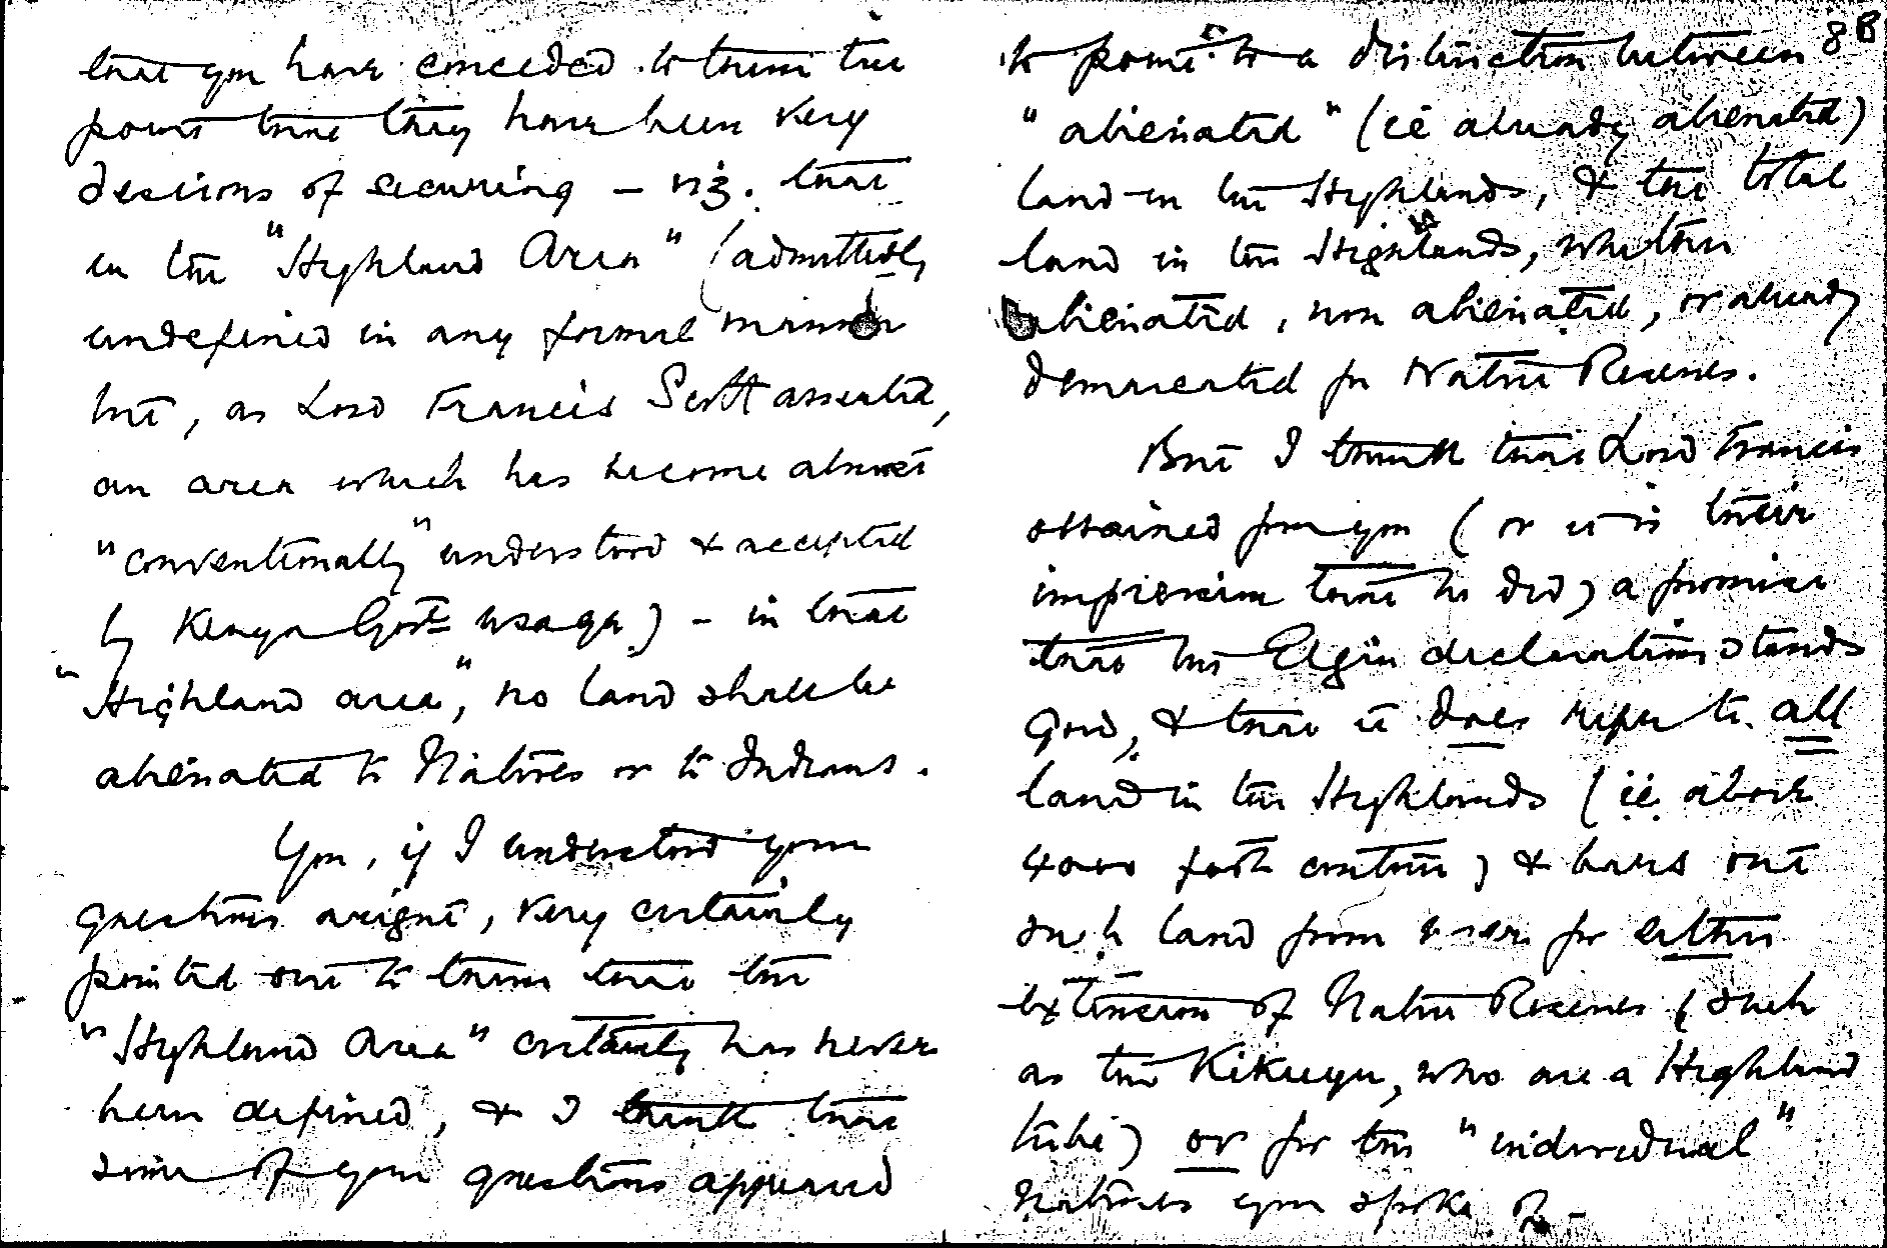 that you have conceded to them the
point that they have been very
desirous of securing – viz. that
in the "Highland Area" (admittedly
undefined in any formal manner
but, as Lord Francis Scott asserted,
an area which has become almost
"conventionally" understood & accepted
by Kenya Govt usage) – in that
"Highland area", no land shall be
alienated to Natives or to Indians.
You, if I understood your
questions aright, very certainly
pointed out to them that the
"Highland Area" certainly has never
been defined, & I think that
some of your questions appeared
8B
to point to a distinction between
"alienated" (ie already alienated)
land in the Highlands, & the total
land in the Highlands, whether
alienated, non alienated, or already
demarcated for Native Reserves.
But I think that Lord Francis
obtained from you (or it is their
impression that he did) a promise
that the Elgin declaration stands
good, & that it does refer to all
land in the Highlands (ie. above
4000 foot contour) & bars out
such land from use for either
extension of Native Reserves (such
as the Kikuyu, who are a Highland
tribe) or for the "individual"
Natives you spoke of –